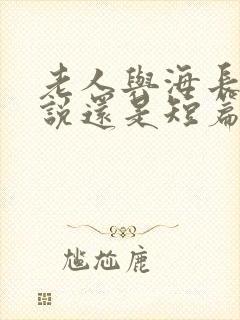 老人與海長
說還是短篇
尷尬鹿